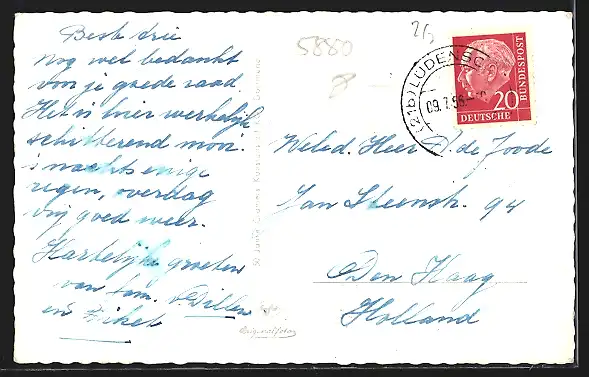 Beste drie
nog wel bedankt
voor je goede raad
Het is hier werkelijk
schitterend mooi
's nachts enige
regen, overdag
vrij goed weer.
Hartelijke groeten
van fam. Dillen
en
5880
26
(21b) LÜDENSC
09.7.56
DEUTSCHE
BUNDESPOST
20
Weled. Heer D. de Joode
Jan Steenstr. 94
Den Haag
Holland
Originalfoto